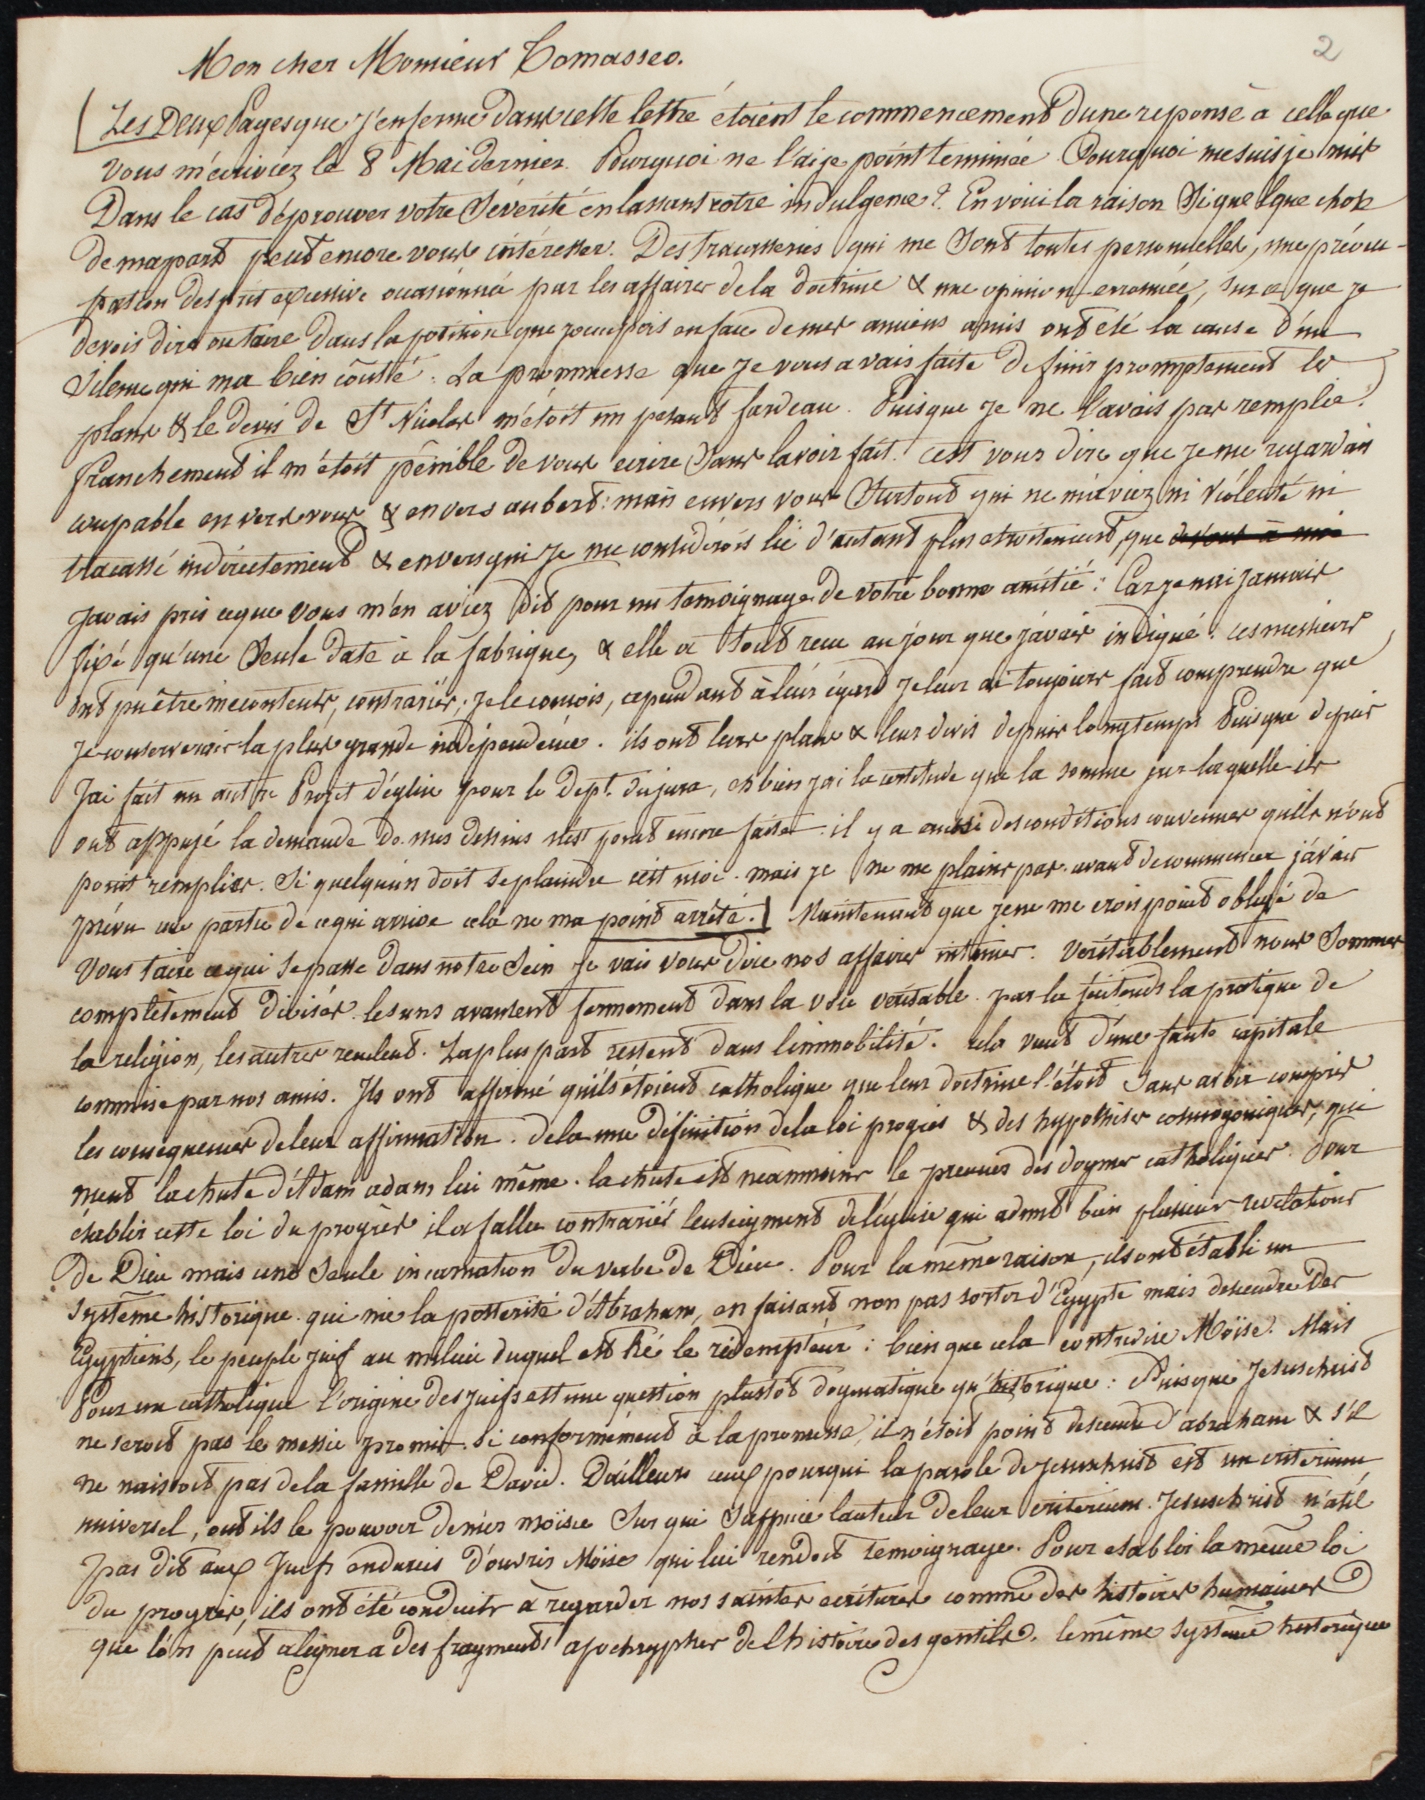 2
Mon cher Monsieur Tomasseo.
Les Deux Pages que j'enferme dans cette lettre étoient le commencement dune reponse à celle que
vous m'écriviez le 8 Mai dernier. Pourquoi ne l'ai je point terminée Pourquoi me suis je mis
Dans le cas d'éprouver votre Sévérité en lassant votre indulgence? En voici la raison Si quelque chose
de ma part peut encore vous intéresser. Des tracasseries qui me Sont toutes personnelles, une préocu-
pation desprit excessive occasionnée par les affaires de la doctrine & une opinion erronnée, sur ce que je
devois dire ou taire dans la position que j'occupois en face de mes anciens amis ont été la cause d'un
Silence qui ma bien coûté. La prommesse que je vous avais faite de finir promptement les
plans & le devis de St Nicolas m'étoit un pesant fardeau. Puisque je ne l'avais pas remplie.
franchement il m'étoit pénible de vous ecrire Sans lavoir fait. cest vous dire que je me regardais
coupable envers vous & envers aubert: mais envers vous Surtout qui ne m'aviez ni violenté ni
tracassé indirectement & envers qui je me considérois lié d'autant plus etroitement, que
javais pris ceque vous m'en aviez dit pour un temoignage de votre bonne amitié: Car je n'ai jamais
fixé qu'une Seule date à la fabrique, & elle a tout recu au jour que j'avais indiqué. ces messieurs
ont pu être mecontents, contrariés, je le conçois, cependant à leur égard je leur ai toujours fait comprendre que
je conserverais la plus grande indépendence. ils ont leurs plans & leur devis depuis longtemps Puisque depuis
J'ai fait un autre Projet d'église pour le Dept. du jura, eh bien j'ai la certitude que la somme sur laquelle ils
ont appuyé la demande de mes dessins n'est point encore faite. il y a aussi des conditions convenues quils n'ont
point remplies. Si quelqu'un doit se plaindre c'est moi. mais je ne me plains pas. avant de commencer j'avais
prévu une partie de ce qui arrive cela ne ma point arrêté. Maintenant que je ne me crois point obligé de
vous taire ce qui se passe dans notre Sein je vais vous dire nos affaires intimes. Veritablement nous Sommes
complètement divisés. les uns avancent fermement dans la voie véritable. par la j'entends la pratique de
la religion, les autres reculent. La plus part restent dans l'immobilité. cela vient d'une faute capitale
commise par nos amis. Ils ont affirmé qu'ils étoient catholique que leur doctrine l'étoit Sans avoir compris
les consequences de leur affirmation. de la une définition de la loi progrès & des hypothèses cosmogoniques, qui
nient la chute d'Adam adam lui même. la chute est neanmoins le premier des dogmes catholiques. Pour
établir cette loi du progrès il a fallu contrarier l'enseigment de l'église qui admet bien plusieur revelations
de Dieu mais une Seule incarnation du verbe de Dieu. Pour la même raison, ils ont établi un
Système historique qui nie la posterité d'Abraham, en faisant non pas sortir d'Egypte mais descendre Des
Egyptiens, le peuple juif au milieu duquel est né le rédempteur: bien que cela contredise Moïse. Mais
Pour un catholique l'origine des juifs est une question plustôt dogmatique qu'historique: Puisque Jesus christ
ne seroit pas le messie promis. Si conformément à la promesse, il n'étoit point descendu d'abraham & s'il
ne naissoit pas de la famille de David. D'ailleurs ceux pour qui la parole de jesus christ est un criterium
universel, ont ils le pouvoir de nier moïse Sur qui S'appuie lauteur de leur criterium. Jesus christ n'a t'il
pas dit aux Juifs endurcis d'ouvrir Moïse qui lui rendoit temoignage. Pour etablir la même loi
du progrès, ils ont été conduits à regarder nos saintes ecritures comme des histoires humaines
que l'on peut aligner a des fragments apochryphes de l'histoire des gentils. le même Système historique